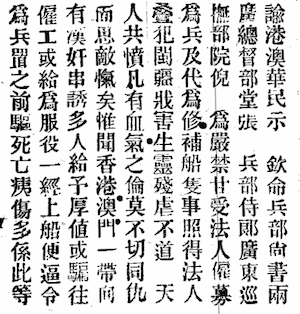 諭港澳華民示　　欽命兵部尚書兩
廣總督部堂張　兵部侍郎廣東巡
撫部院倪　為嚴禁甘受法人僱募
為兵及代為修補船隻事照得法人
疊犯閩疆戕害生靈殘虐不道　天
人共憤凡有血氣之倫莫不切同仇
而思敵愾矣惟聞香港澳門一帶向
有漢奸串誘多人給予厚値或騙往
僱工或給為服役一經上船便逼令
為兵置之前驅死亡殘傷多係此等